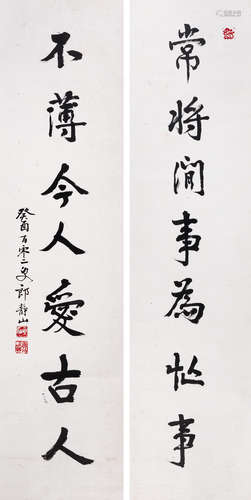 常將閒事為忙事
不薄今人愛古人
癸酉百零二叟郎靜山